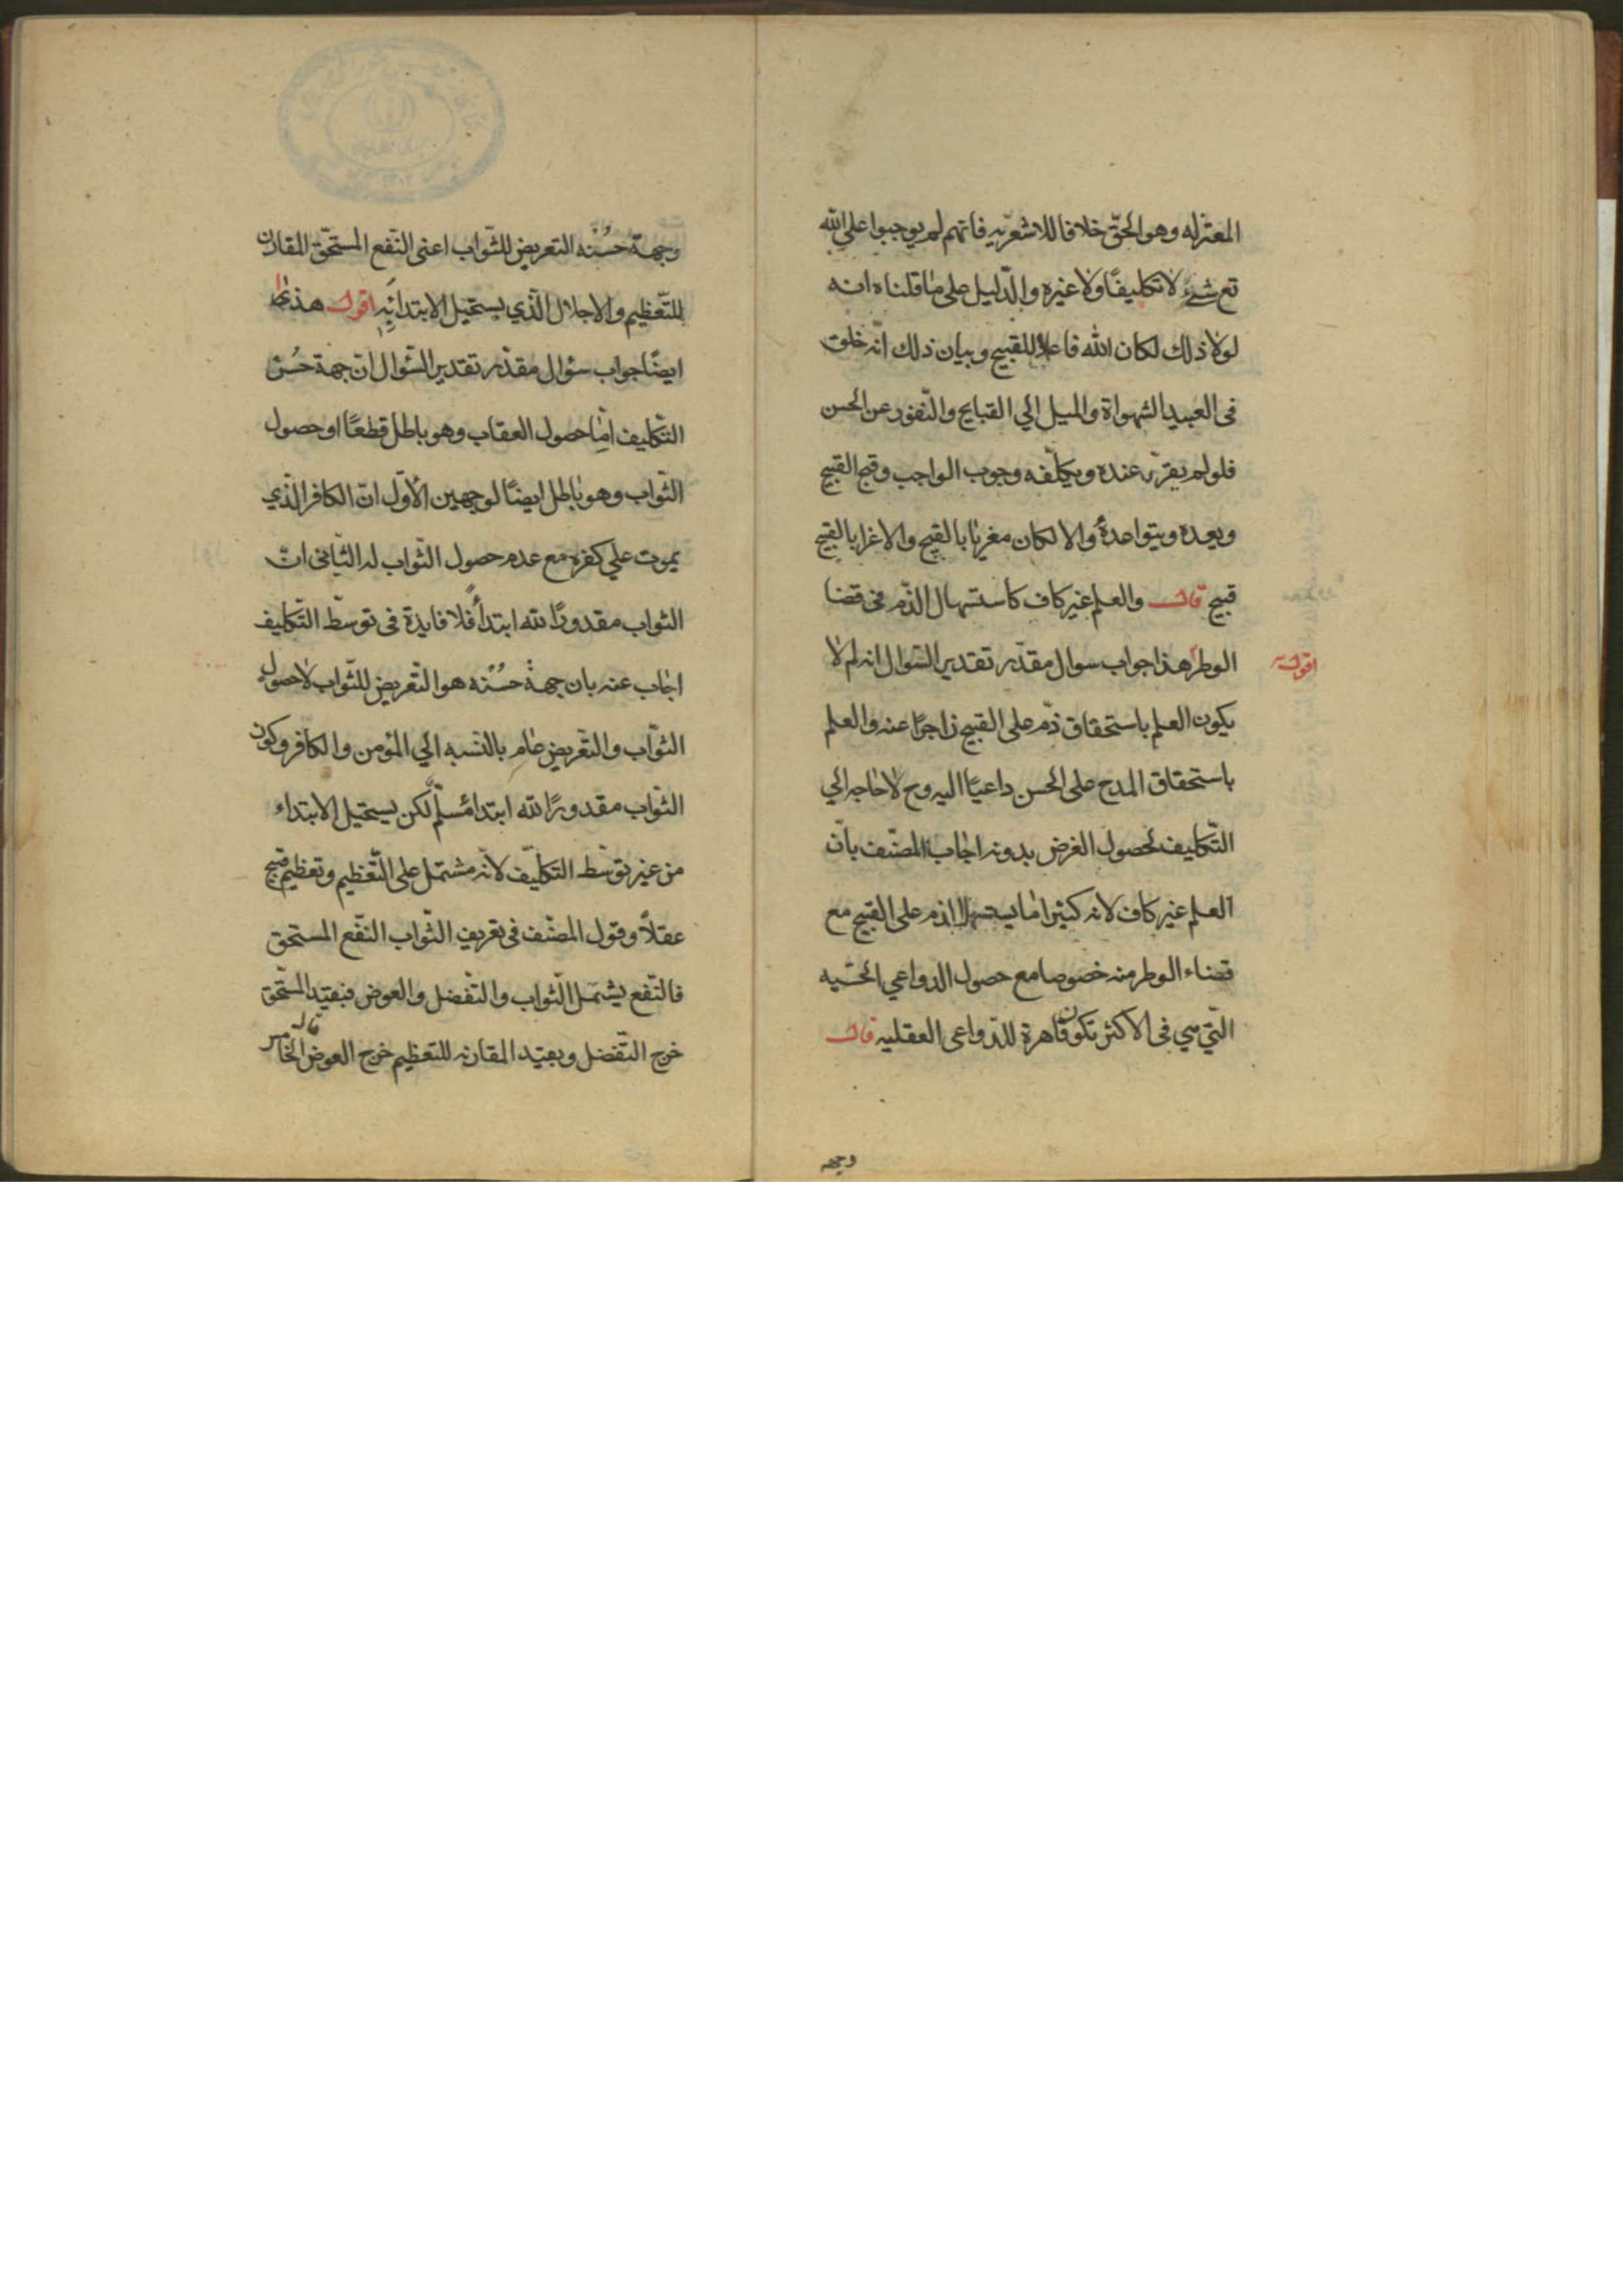 المعتزله وهو الحقّ خلافا للاشعّريه فانهم لم يوجبوا علي اللّه
تع شئ لا تكليفًا ولا غيره والدّليل على ما قلناه انه
لولا ذلك لكان الله فاعلا للقبيح وبيان ذلك انّه خلق
فى العبيد الشهواة والميل الي القبايح والنّفور عن الحسن
فلو لم يقرّر عنده ويكلّفه وجوب الواجب وقبح القبيح
ويعده ويتواعدهُ والا لكان مغريًا بالقبيح والاغرا بالقبيح
قبيح قال والعلم غير كاف كاستسهال الذّم فى قضا
الوطر هذا جواب سوال مقدّر تقدير السّوال انه لم لا
اقول
يكون العلم باستحقاق ذمّ على القبيح زاجرًا عنه والعلم
باستحقاق المدح على الحسن داعيًا اليه وح لا حاجه الي
التّكليف لحصول الغرض بدونه اجاب المصنّف بانّ
العلم غير كاف لانه كثيرا ما يستسهل الذم على القبيح مع
قضاء الوطر منه خصوصا مع حصول الدواعي الحسّيه
الّتي هي فى الاكثر تكون قاهرة للدّواعى العقليه قال
وجهه
وجهة حسُنه التعريض للثّواب اعنى النّفع المستحّق المقارن
للتّعظيم والاجلال الّذي يستحيل الابتدائه اقول هذا
ايضًا جواب سئوال مقدّر تقدير السّئوال انّ جهة حُسن
التكليف امّا حصول العقاب وهو باطل قطعًا او حصول
الثّواب وهو باطل ايضًا لوجهين الاوّل انّ الكافر الّذي
يموت علي كفره مع عدم حصول الثّواب له الثّانى انّ
الثواب مقدورًا لله ابتدأً فلا فايدة فى توسّط التّكليف
اجاب عنه بان جهة حسُنه هو التّعريض للثّواب لا حصول
الثوّاب والتّعريض عام بالنّسبه الي المؤمن والكافر وكون
الثوّاب مقدورًا لله ابتدا مُسلّم لكن يستحيل الابتداء
من غير توسّط التكليّف لانّه مشتمل على التّعظيم وتعظيم قبيح
عقلاً وقول المصنّف فى تعريف الثّواب النّفع المستحق
فالنّفع يشتمل الثّواب والتّفضل والعوض فبقيّد المستّحق
خرج التّفضل وبقيّد المقارنه للتعظيم خرج العوض قال الخامس